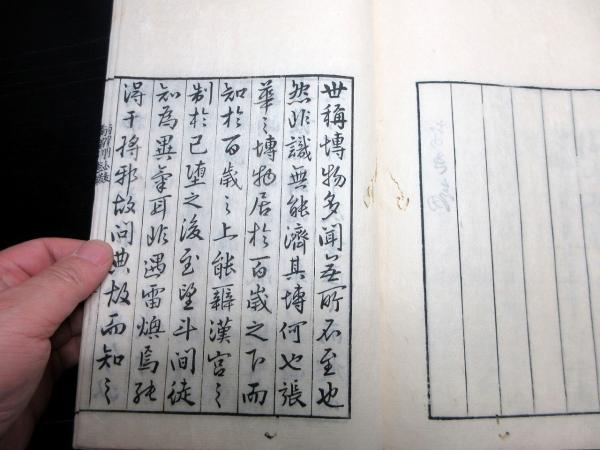 世稱博物多聞無所不至也
然非識無能濟其博何也張
華之博物居於百歲之下而
知於百歲之上能辯漢宮之
制於已墮之後至望斗間徒
知為異氣耳非遇雷煥焉能
得干將邪故問典故而知之